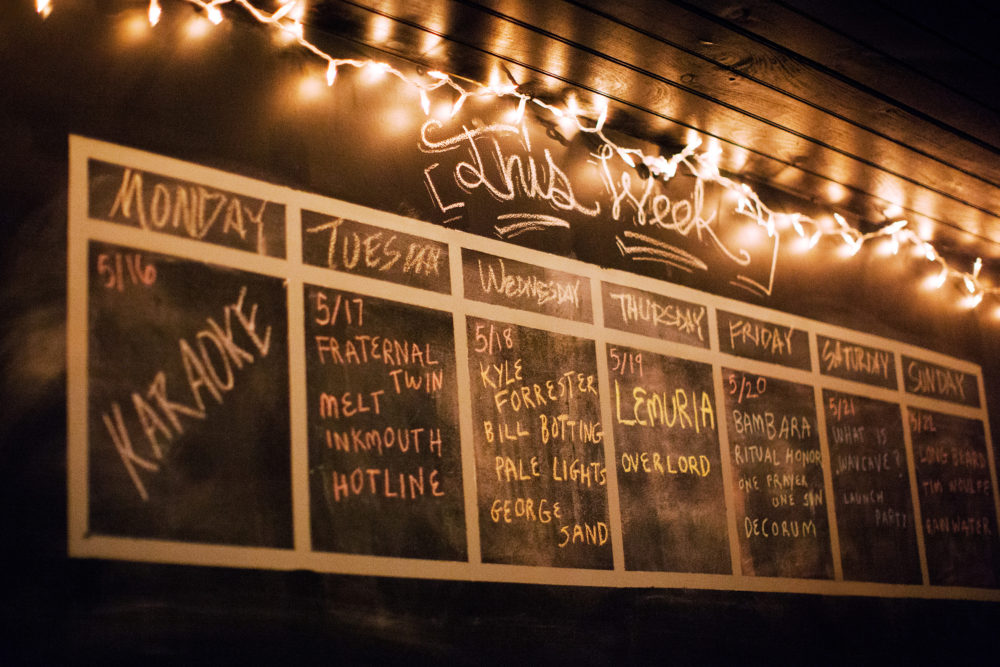 This Week
MONDAY
TUESDAY
WEDNESDAY
THURSDAY
FRIDAY
SATURDAY
SUNDAY
5/16
KARAOKE
5/17
FRATERNAL
TWIN
MELT
INKMOUTH
HOTLINE
5/18
KYLE
FORRESTER
BILL BOTTING
PALE LIGHTS
GEORGE
SAND
5/19
LEMURIA
OVERLORD
5/20
BAMBARA
RITUAL HONOR
ONE PRAYER
ONE SIN
DECORUM
5/21
WHAT IS
LAUNCH
PARTY
5/22
LONG BEARDS
TIM